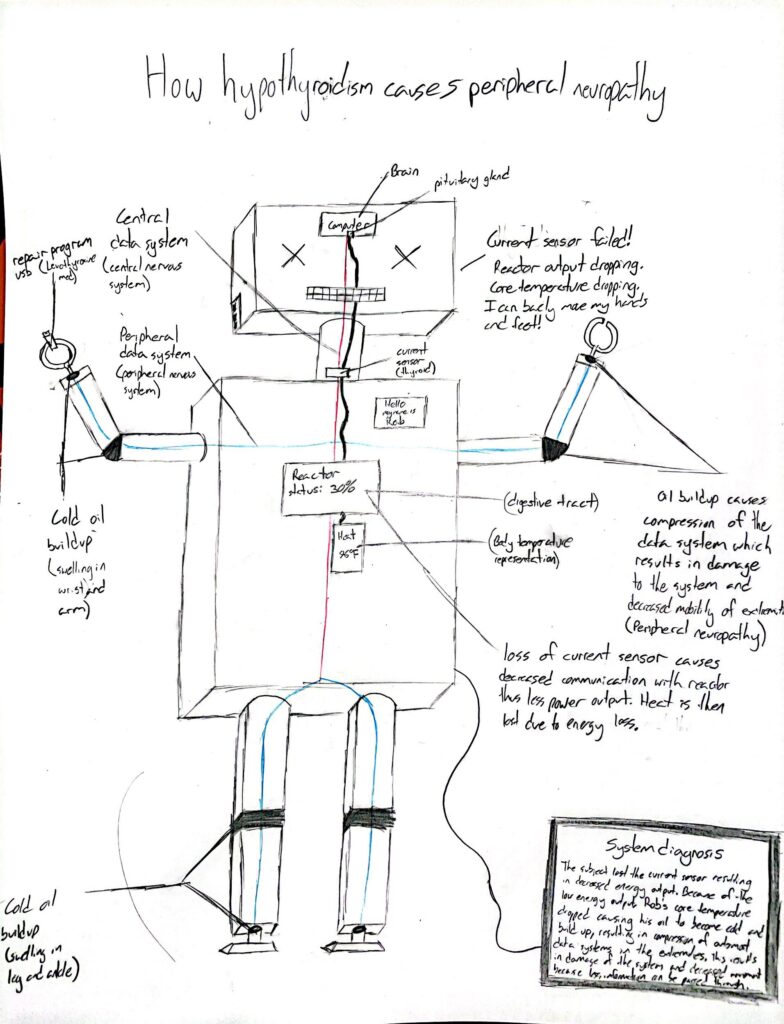 How hypothyroidism causes peripheral neuropathy
Brain
pituitary gland
Computer
Central
data system
(central nervous
system)
repair program
usb (Levothyroxine
med)
Peripheral
data system
(peripheral nervous
system)
Current sensor failed!
Reactor output dropping.
Core temperature dropping.
I can barly move my hands
and feet!
current
sensor
(thyroid)
Hello
my name is
Rob
Reactor
status: 30%
(digestive tract)
Heat
96°F
(Body temperature
representation)
Cold oil
buildup
(swelling in
wrist and
arm)
Oil buildup causes
compression of the
data system which
results in damage
to the system and
decreased mobility of
(Peripheral neuropathy)
loss of current sensor causes
decreased communication with reactor
thus less power output. Heat is then
lost due to energy loss.
Cold oil
buildup
(swelling in
leg and ankle)
System diagnosis
The subject lost the current sensor resulting
in decreased energy output. Because of the
low energy output Rob's core temperature
dropped causing his oil to become cold and
build up, resulting in compression of
data systems in the extremities, this results
in damage of the system and decreased
because less information can be passed through.